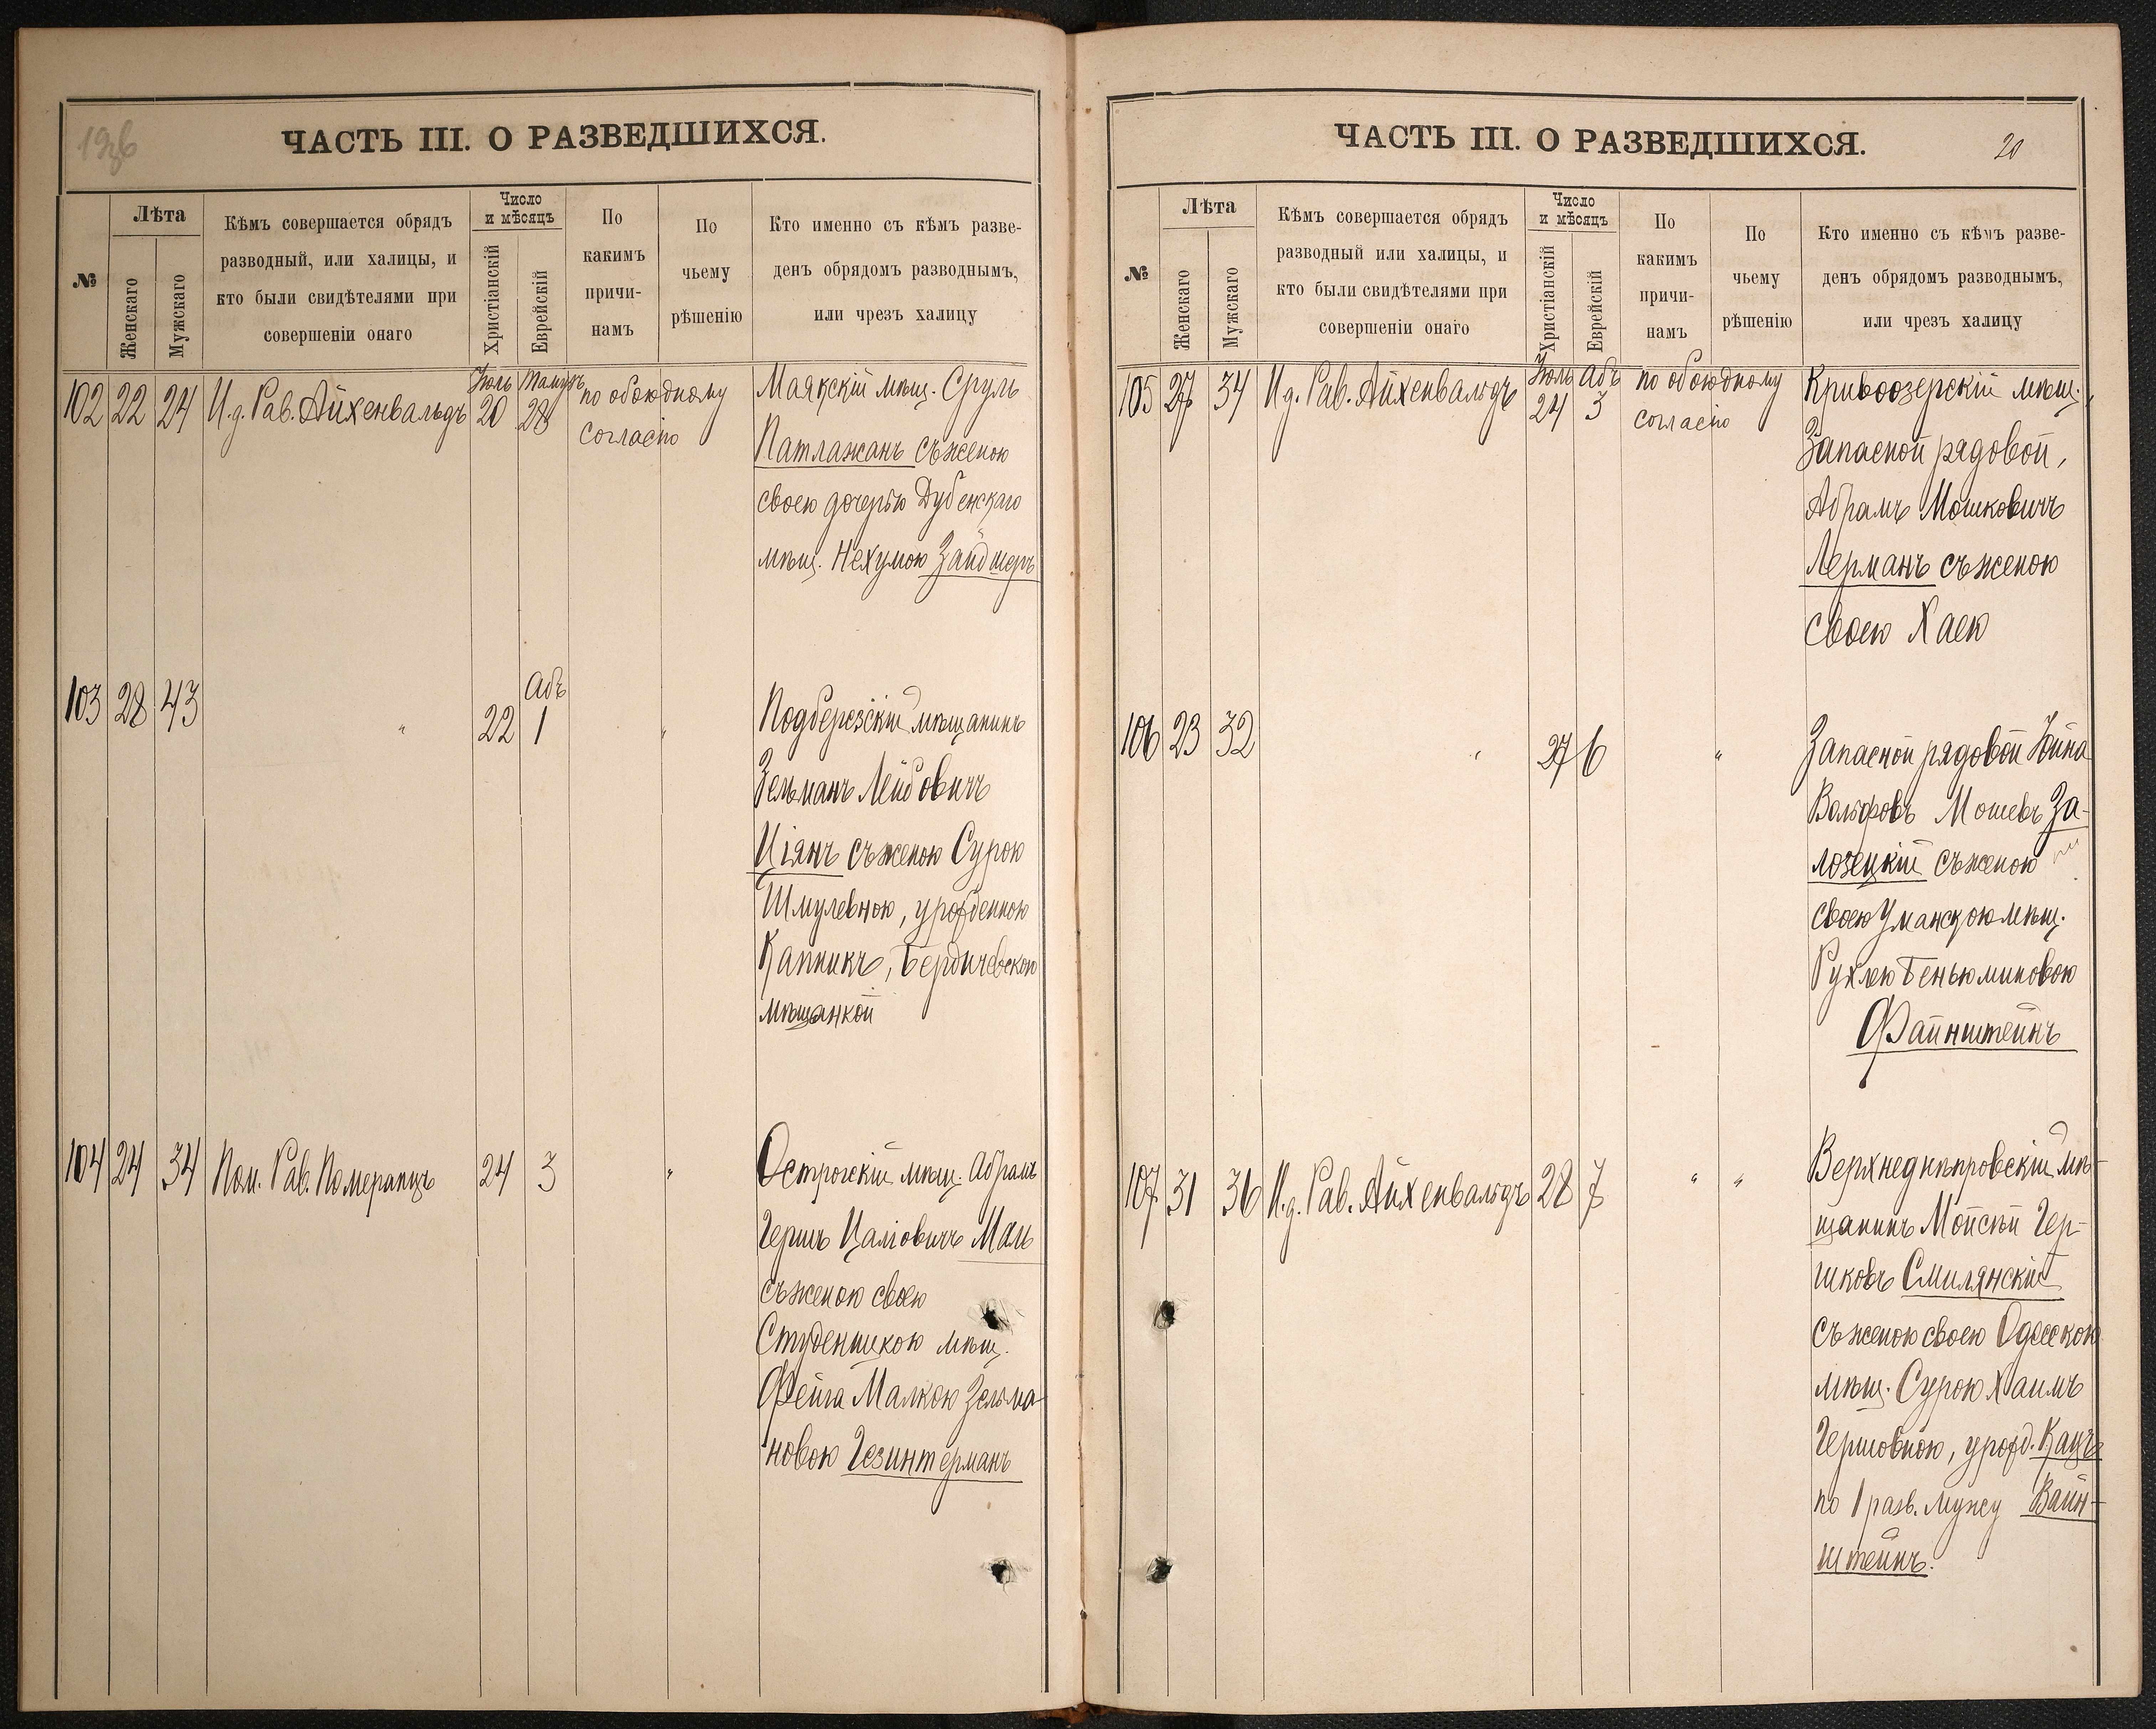 19зб
ЧАСТЬ III. О РАЗВЕДШИХСЯ.
№
Лѣта
Женскаго
Мужскаго
Кѣмъ совершается обрядъ
разводный, или халицы, и
кто были свидѣтелями при
совершеніи онаго
Число
и мѣсяцъ
Христіанскій
Еврейскій
По
какимъ
причи-
намъ
По
чьему
рѣшенію
Кто именно съ кѣмъ разве-
денъ обрядомъ разводнымъ,
или чрезъ халицу
102 22 24 И.д. Рав. Айхенвальдъ
Іюль 20
Тамузъ 28
по обоюдному
согласію
Маякскій мѣщ. Сруль
Патлажанъ съ женою
своею дочерью Дубенскаго
мѣщ. Нехумою Зайдшеръ
103 28 43 " 22
Абъ
1 "
Подберезскій мѣщанинъ
Зельманъ Лейбовичъ
Ціянъ съ женою Сурою
Шмулевною, урожденною
Капникъ, Бердичевскою
мѣщанкой
104 24 34 Пом. Рав. Померанцъ 24 3 "
Острогскій мѣщ. Абрамъ
Гершъ Цаліовичъ Маль
съ женою своею
Студеницкою мѣщ.
Фейга Малкою Зельма-
новою Гезинтерманъ
ЧАСТЬ III. О РАЗВЕДШИХСЯ.
20
№
Лѣта
Женскаго
Мужскаго
Кѣмъ совершается обрядъ
разводный или халицы, и
кто были свидѣтелями при
совершеніи онаго
Число
и мѣсяцъ
Христіанскій
Еврейскій
По
какимъ
причи-
намъ
По
чьему
рѣшенію
Кто именно съ кѣмъ разве-
денъ обрядомъ разводнымъ,
или чрезъ халицу
105 27 34 И.д. Рав. Айхенвальдъ
Іюль 24
Абъ 3
по обоюдному
согласію
Кривоозерскій мѣщ.,
Запасной рядовой,
Абрамъ Мошковичъ
Лерманъ съ женою
своею Хаею
106 23 32 " 27 6 "
Запасной рядовой Іойна
Вольфовъ Мошевъ За-
лозецкій съ женою
своею Уманскою мѣщ.
Рухлею Беньюминовою
Файнштейнъ
107 31 36 И.д. Рав. Айхенвальдъ 28 7 " "
Верхнеднѣпровскій мѣ-
щанинъ Мойсѣй Гер-
шковъ Смилянскій
съ женою своею Одесскою
мѣщ. Сурою Хаимъ
Гершовною, урожд. Кацъ
по 1 разв. мужу Вайн-
штейнъ.